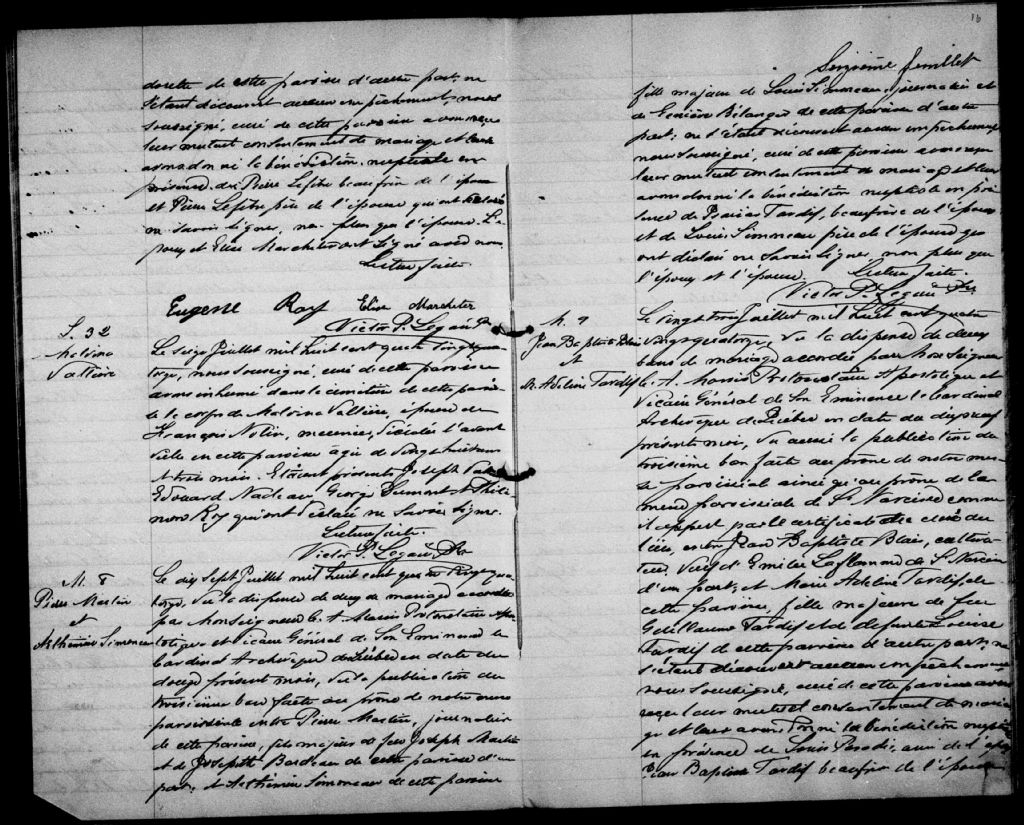 de cette paroisse d'autre part; ne
s'étant découvert aucun empêchement, nous
soussigné, curé de cette paroisse avons reçu
leur mutuel consentement de mariage et leur
avons donné la bénédiction nuptiale en
présence de Pierre Lefebvre beaufrère de l'époux
et Pierre père de l'épouse qui ont déclaré
ne savoir signer, non plus que l'épouse. L'é-
poux et Elise Marcheter ont signé avec nous.
Lecture faite.
Eugene Roy Elise Marcheter
Victor P. Legaré Ptre
S. 32
Malvina
Vallière
Le seize Juillet mil huit cent quatre vingt qua-
torze, nous soussigné, curé de cette paroisse
avons inhumé dans le cimetière de cette parois-
se le corps de Malvina Vallière, épouse de
François Nolin, meunier, décédée l'avant
veille en cette paroisse âgée de vingt huit ans
et trois mois. Etaient présents Joseph
Edouard Nadeau, George Dumont et Phile-
mon Roy qui ont déclaré ne savoir signer.
Lecture faite.
Victor P. Legaré, Ptre
M. 8
Pierre Martin
et
Arthémise Simoneau
Le dix sept Juillet mil huit cent quatre vingt qua-
torze, vu la dispense de deux de mariage accordée
par Monseigneur C. A. Marois Protonotaire Apos-
tolique et Vicaire Général de Son Eminence le
Cardinal Archevêque de Québec en date du
douze présent mois, vu la publication du
troisième ban faite au prône de notre messe
paroissiale entre Pierre Martin, journalier
de cette paroisse, fils majeur de feu Joseph Martin
et de Josephte Bordeau de cette paroisse d'une
part; et Arthémise Simmoneau de cette paroisse
16
Seizième feuillet
fille majeure de Louis Simmoneau, journalier et
de Bélanger de cette paroisse d'autre
part; ne s'étant découvert aucun empêchement
nous soussigné, curé de cette paroisse avons reçu
leur mutuel consentement de mariage et leur
avons donné la bénédiction nuptiale en pré-
sence de Tardif, beaufrère de l'époux,
et de Louis Simmoneau père de l'épouse qui
ont déclaré ne savoir signer, non plus que
l'époux et l'épouse. Lecture faite.
Victor P. Legaré Ptre
M. 9
Jean Baptiste Blais
et
M. Adeline Tardif
Le vingt trois Juillet mil huit cent quatre
vingt quatorze, vu la dispense de deux
bans de mariage accordée par Monseigneur
C. A. Marois Protonotaire Apostolique et
Vicaire Général de Son Eminence le Cardinal
Archevêque de Québec en date du dix neuf
présent mois, vu aussi la publication du
troisième ban faite au prône de notre mes-
se paroissiale ainsi qu'au prône de la
messe paroissiale de St Narcisse comme
il appert par le certificat du curé du
lieu, entre Jean Baptiste Blais, cultiva-
teur, veuf d'Emilie Laflamme de St Narcisse
d'une part; et Marie Adeline Tardif de
cette paroisse, fille majeure de feu
Guillaume Tardif et de defunte Louise
Tardif de cette paroisse d'autre part; ne
s'étant découvert aucun empêchement
nous soussigné, curé de cette paroisse avons
reçu leur mutuel consentement de maria-
ge et leur avons donné la bénédiction nuptiale
en présence de Louis Parodi, ami de l'époux
Jean Baptiste Tardif beaufrère de l'épouse